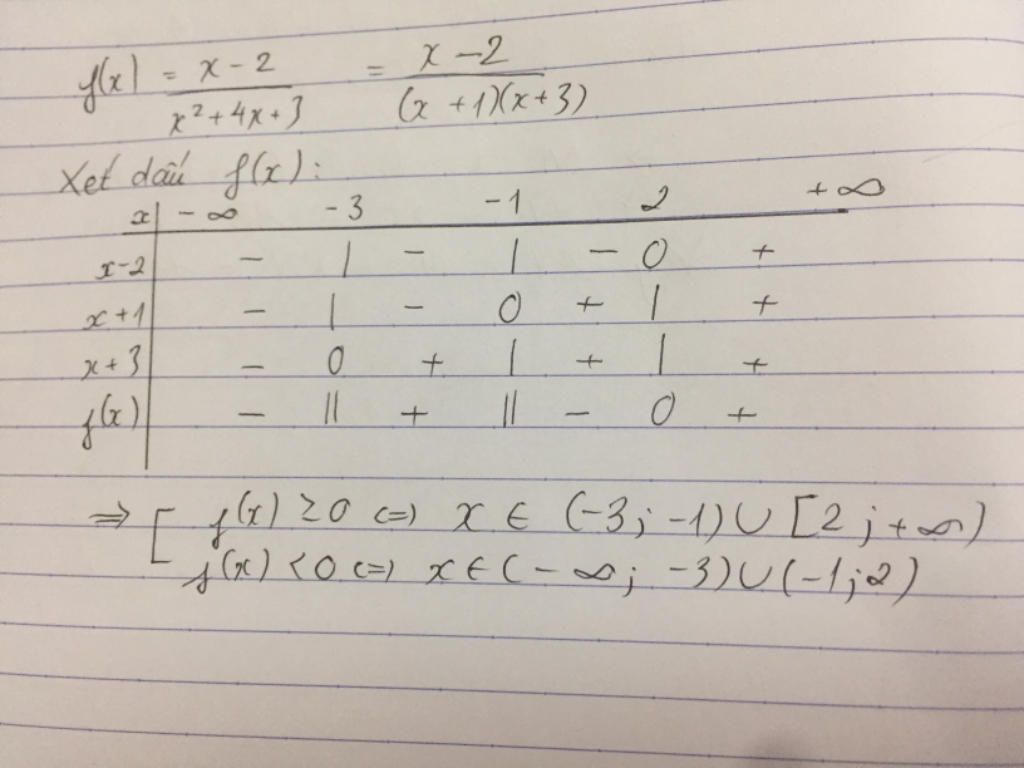 f(x) = x - 2 / x² + 4x + 3 = x - 2 / (x + 1)(x + 3)
Xét dấu f(x):
x | -∞ -3 -1 2 +∞
x-2 | - | - | - 0 +
x+1 | - | - 0 + | +
x+3 | - 0 + | + | +
f(x) | - || + || - 0 +
⇒ [ f(x) ≥ 0 ⇔ x ∈ (-3; -1) ∪ [2; +∞)
f(x) < 0 ⇔ x ∈ (-∞; -3) ∪ (-1; 2)